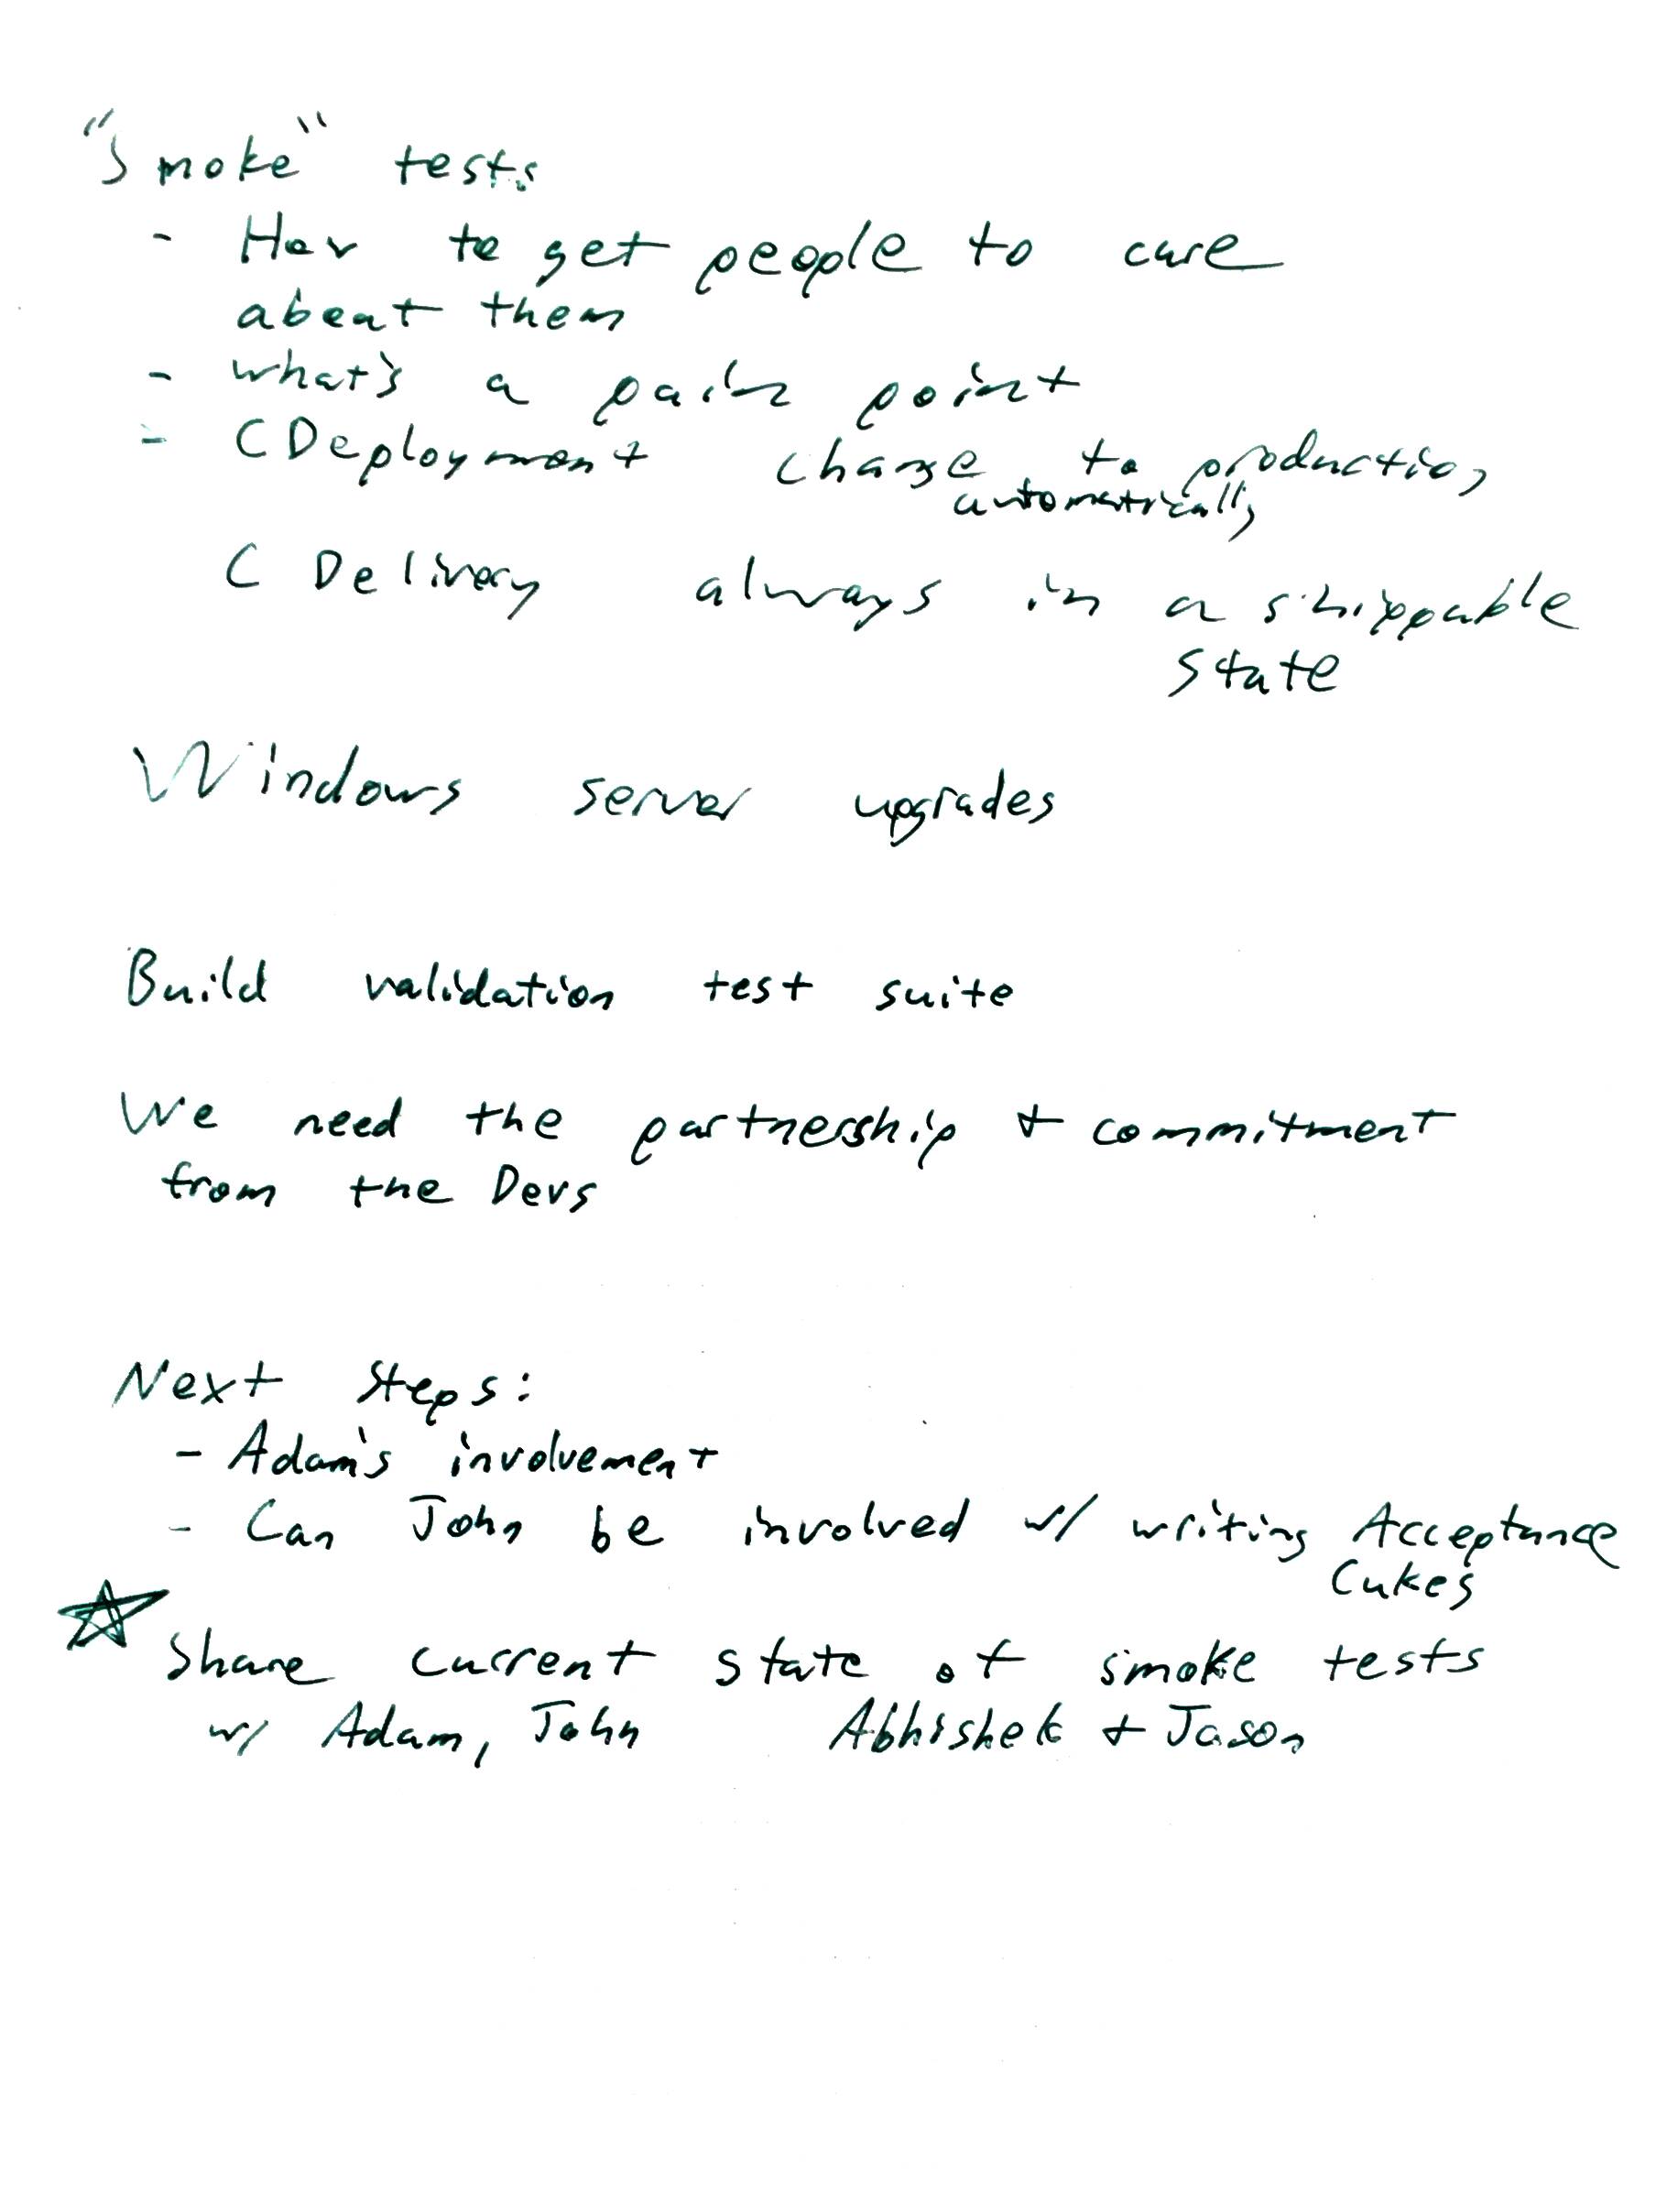 "Smoke" tests
- How to get people to care
about them
- what's a pain point
- CDeployment change to production
automatically
C Delivery always in a shippable
state
Windows server upgrades
Build validation test suite
We need the partnership + commitment
from the Devs
Next Steps:
- Adam's involvement
- Can John be involved w/ writing Acceptance
Cukes
Share current state of smoke tests
w/ Adam, John Abhishek + Jason